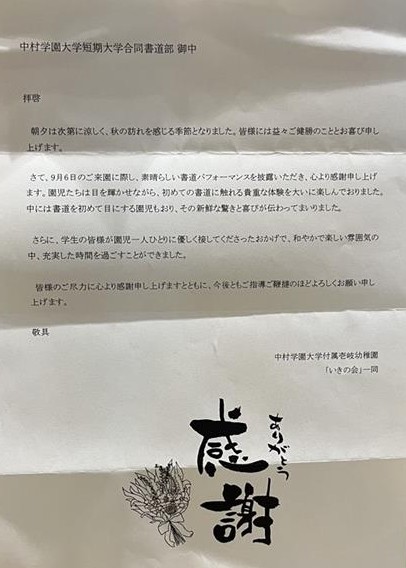 中村学園大学短期大学合同書道部 御中
拝啓
朝夕は次第に涼しく、秋の訪れを感じる季節となりました。皆様には益々ご健勝のこととお喜び申し
上げます。
さて、9月6日のご来園に際し、素晴らしい書道パフォーマンスを披露いただき、心より感謝申し上げ
ます。園児たちは目を輝かせながら、初めての書道に触れる貴重な体験を大いに楽しんでおりました。
中には書道を初めて目にする園児もおり、その新鮮な驚きと喜びが伝わってまいりました。
さらに、学生の皆様が園児一人ひとりに優しく接してくださったおかげで、和やかで楽しい雰囲気の
中、充実した時間を過ごすことができました。
皆様のご尽力に心より感謝申し上げますとともに、今後ともご指導ご鞭撻のほどよろしくお願い申し
上げます。
敬具
中村学園大学付属壱岐幼稚園
「いきの会」一同
ありがとう
感謝